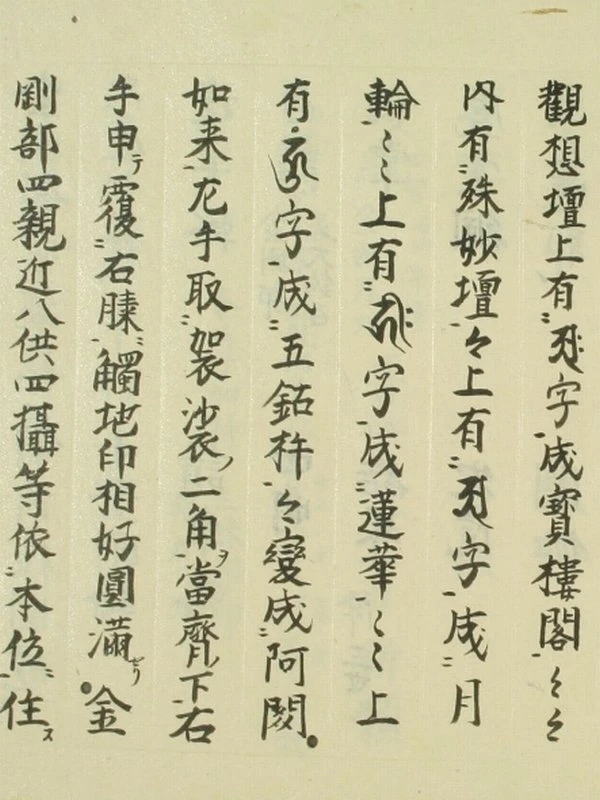 觀想壇上有字成寶樓閣々々
内有殊妙壇々上有字成月
輪々々上有字成蓮華々々上
有字成五鈷杵々變成阿閦
如来左手取袈裟二角ヲ當齊下右
手申テ覆右膝觸地印相好圓滿セリ金
剛部四親近八供四攝等依本位住ス